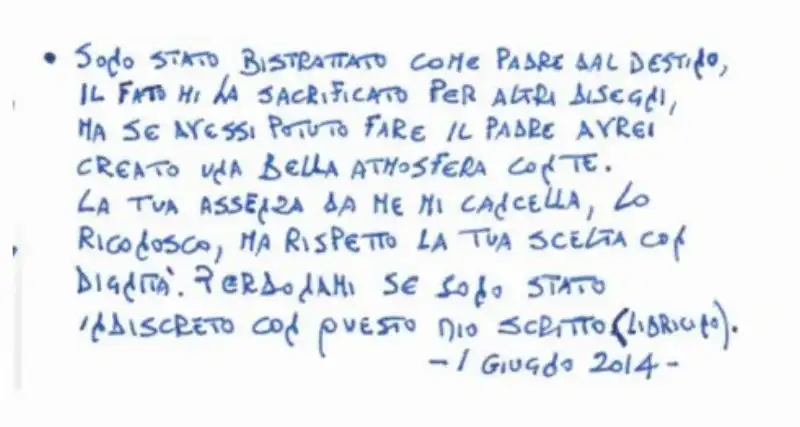 • SONO STATO BISTRATTATO COME PADRE DAL DESTINO,
IL FATO MI HA SACRIFICATO PER ALTRI DISEGNI,
MA SE AVESSI POTUTO FARE IL PADRE AVREI
CREATO UNA BELLA ATMOSFERA CON TE.
LA TUA ASSENZA DA ME MI CANCELLA, LO
RICONOSCO, MA RISPETTO LA TUA SCELTA CON
DIGNITÀ. PERDONAMI SE SONO STATO
INDISCRETO CON QUESTO MIO SCRITTO (LIBRICINO).
- 1 GIUGNO 2014 -